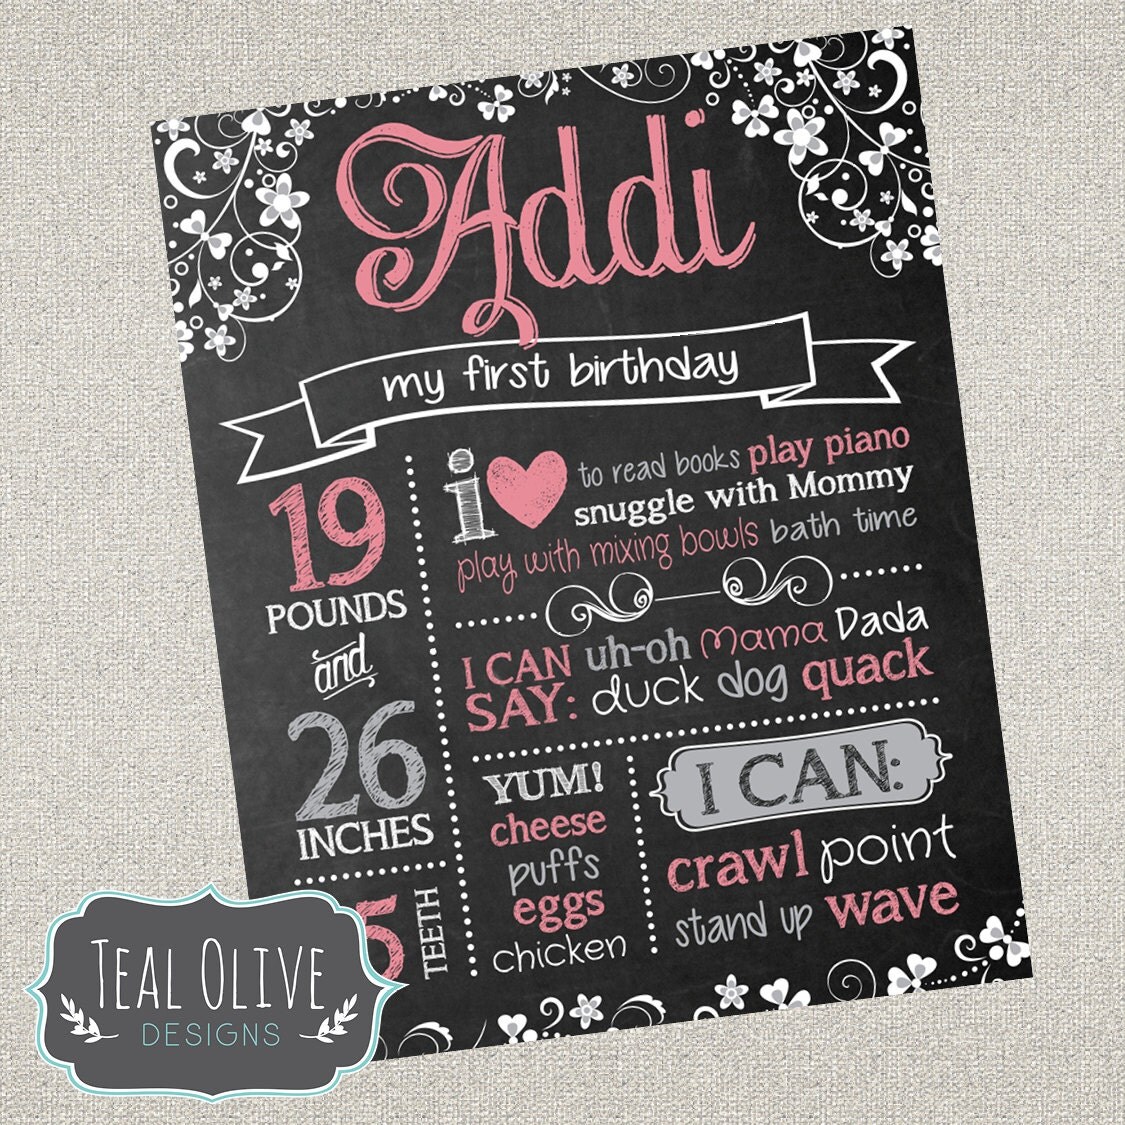 Addi
my first birthday
19
POUNDS
and
26
INCHES
5 TEETH
i
to read books play piano
snuggle with Mommy
play with mixing bowls bath time
I CAN SAY: uh-oh Mama Dada
duck dog quack
YUM!
cheese
puffs
eggs
chicken
I CAN:
crawl point
stand up wave
TEAL OLIVE
DESIGNS